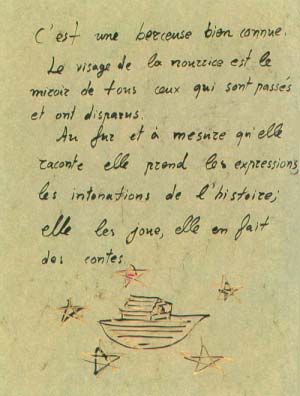 C'est une berceuse bien connue.
Le visage de la nourrice est le
miroir de tous ceux qui sont passés
et ont disparus.
Au fur et à mesure qu'elle
raconte elle prend les expressions,
les intonations de l'histoire;
elle les joue, elle en fait
des contes